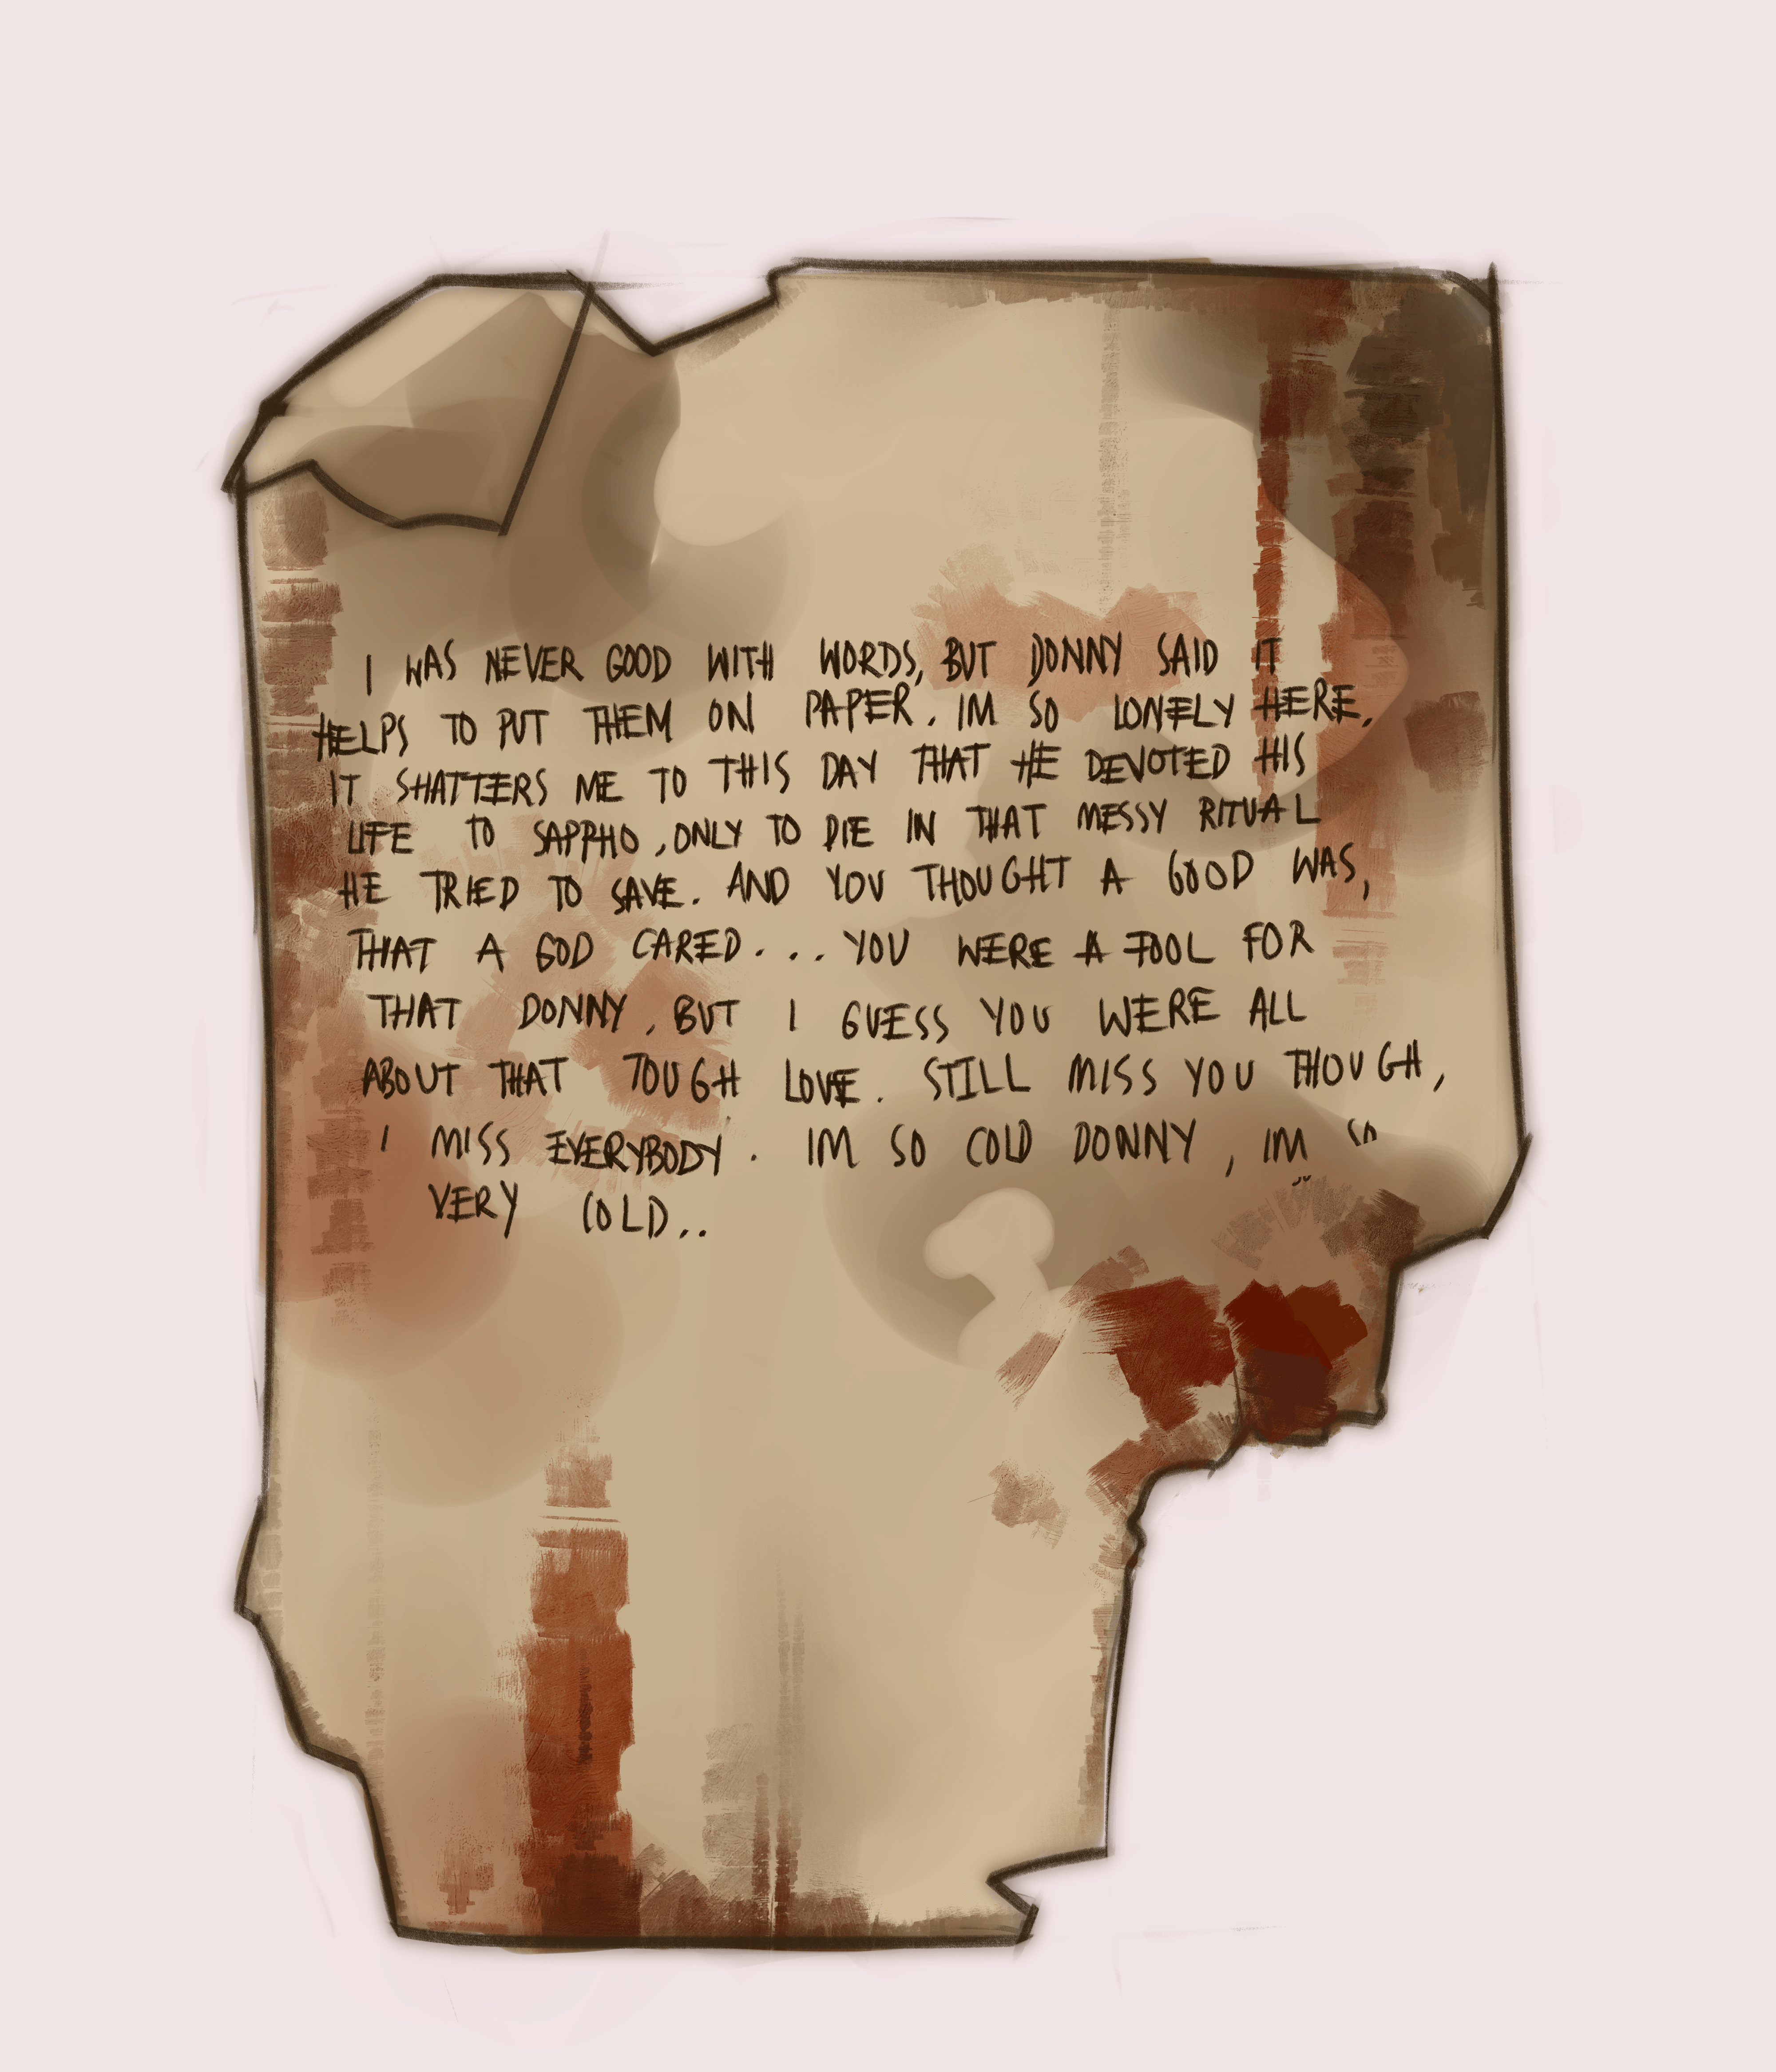 I WAS NEVER GOOD WITH WORDS, BUT DONNY SAID IT
HELPS TO PUT THEM ON PAPER. IM SO LONELY HERE,
IT SHATTERS ME TO THIS DAY THAT HE DEVOTED HIS
LIFE TO SAPPHO, ONLY TO DIE IN THAT MESSY RITUAL
HE TRIED TO SAVE. AND YOU THOUGHT A GOOD WAS,
THAT A GOD CARED... YOU WERE A FOOL FOR
THAT DONNY, BUT I GUESS YOU WERE ALL
ABOUT THAT TOUGH LOVE. STILL MISS YOU THOUGH,
I MISS EVERYBODY. IM SO COLD DONNY, IM
VERY COLD..